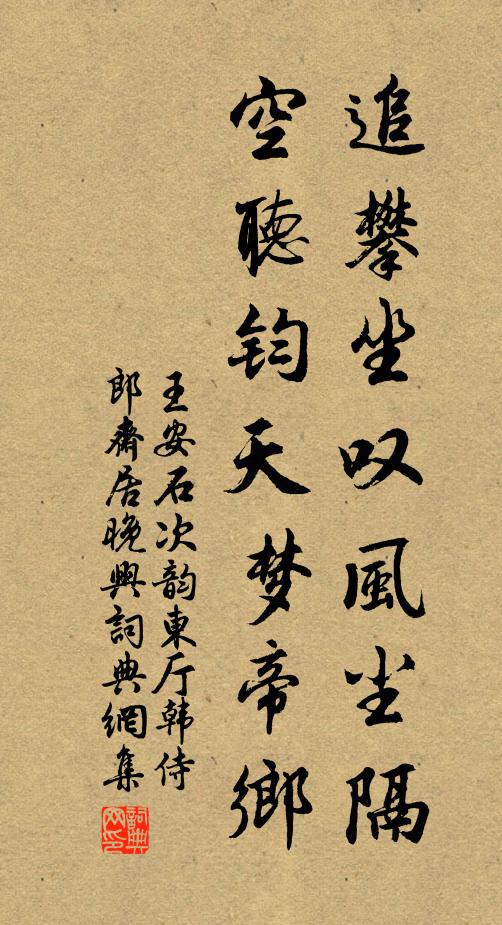 追攀坐叹風尘隔
空聽钧天梦帝鄉
王安石次韵東厅韩侍
郎齋居晚興詞典網集
詞典
网印